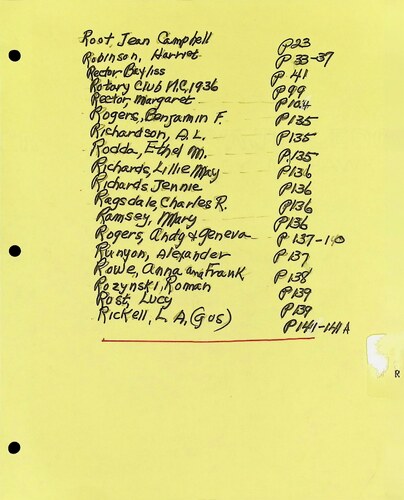 Root, Jean Campbell P23
Robinson, Harriet P 33-37
Rector Bayliss P 41
Rotary Club N.C. 1936 P 99
Rector, Margaret P 104
Rogers, Benjamin F. P135
Richardson, A. L. P135
Rodda, Ethel M. P.135
Richards, Lillie May P136
Richards Jennie P136
Ragsdale, Charles R. P136
Ramsey, Mary P136
Rogers, Andy & Geneva P 137-140
Runyon, Alexander P137
Rowe, Anna and Frank P138
Rozynski, Roman P139
Rost, Lucy P139
Rickell, L A, (Gus) P141-141A
R